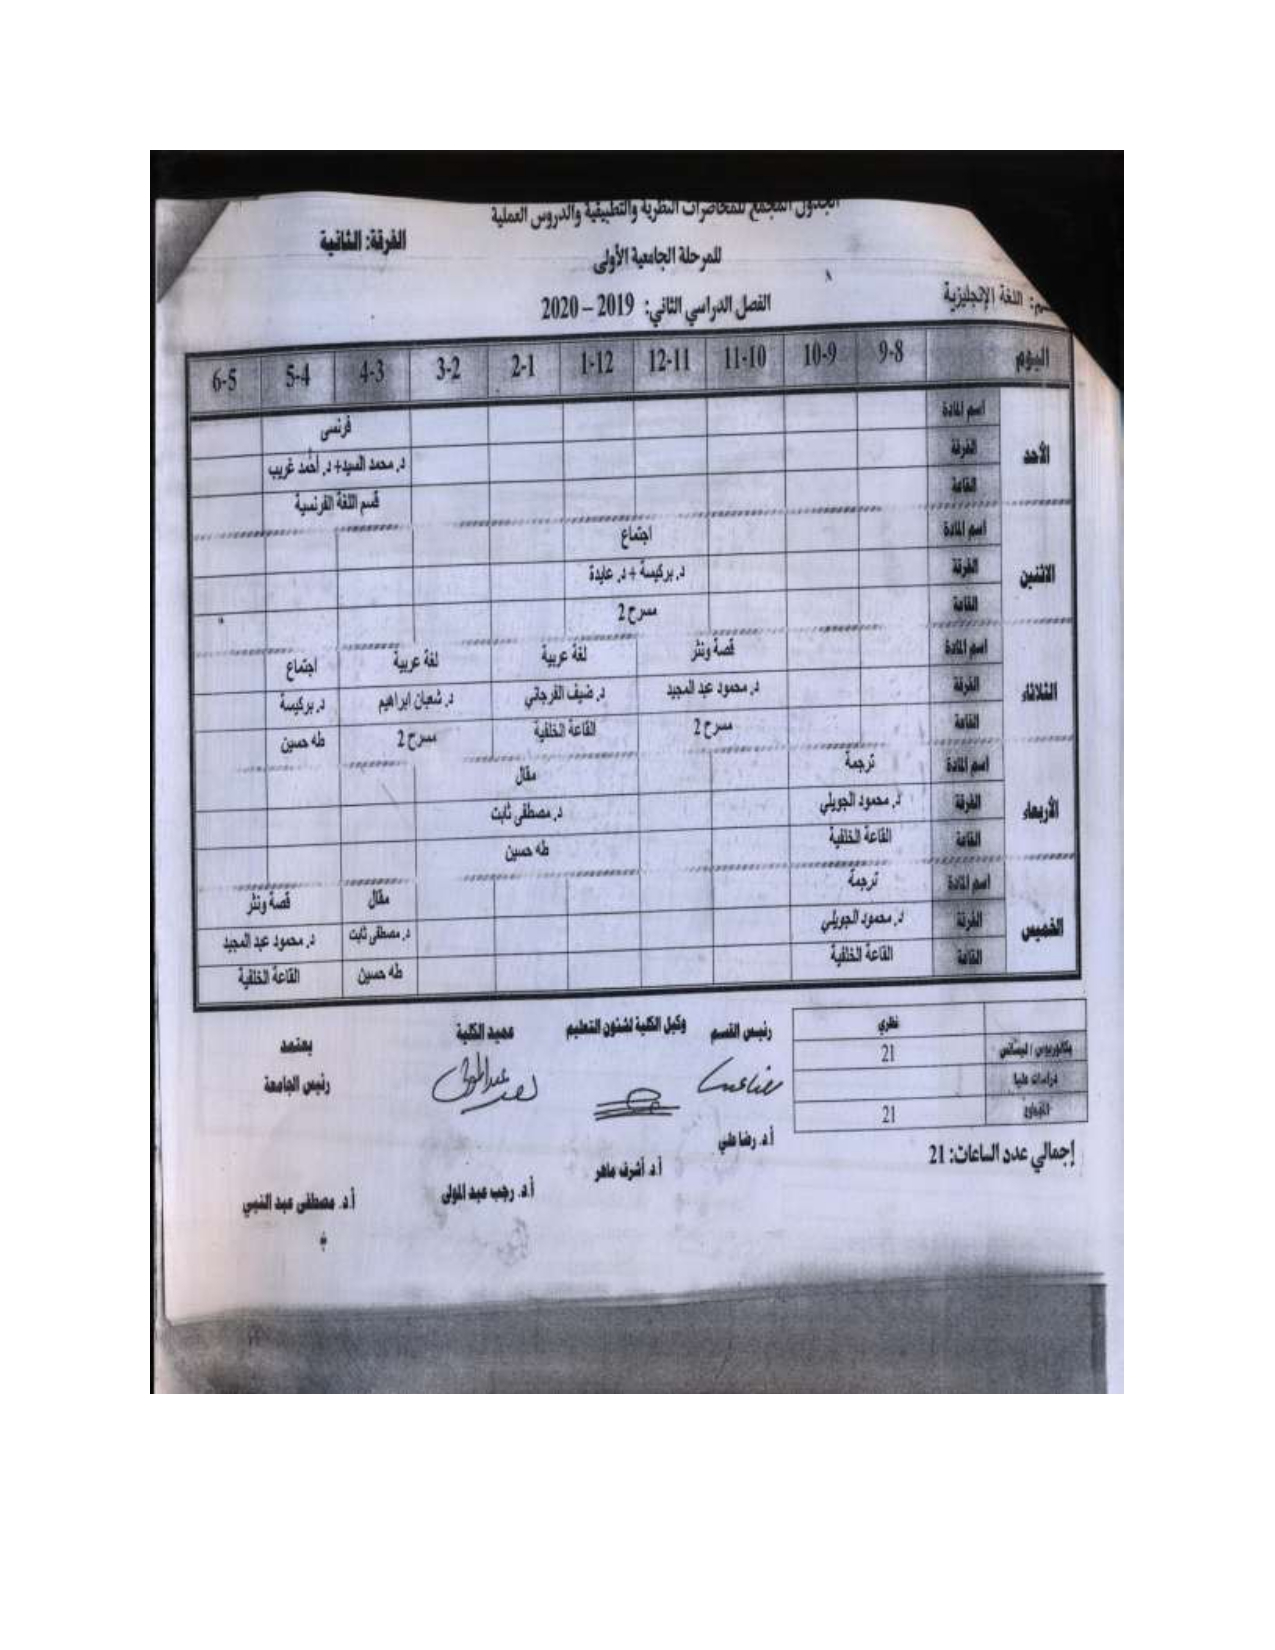 الجدول المجمع للمحاضرات النظرية والتطبيقية والدروس العملية
للمرحلة الجامعية الأولى
الفرقة: الثانية
الفصل الدراسي الثاني: 2019 – 2020
اللغة الإنجليزية
اليوم 9-8 10-9 11-10 12-11 1-12 2-1 3-2 4-3 5-4 6-5
الأحد
اسم المادة فرنسى
الفرقة د. محمد السيد+ د. أحمد غريب
القاعة قسم اللغة الفرنسية
الاثنين
اسم المادة اجتماع
الفرقة د. بركيسة + د. عايدة
القاعة مسرح 2
الثلاثاء
اسم المادة قصة ونثر لغة عربية لغة عربية اجتماع
الفرقة د. محمود عبد المجيد د. ضيف الفرجاني د. شعبان ابراهيم د. بركيسة
القاعة مسرح 2 القاعة الخلفية مسرح 2 طه حسين
الأربعاء
اسم المادة ترجمة مقال
الفرقة د. محمود الجويلي د. مصطفى ثابت
القاعة القاعة الخلفية طه حسين
الخميس
اسم المادة ترجمة مقال قصة ونثر
الفرقة د. محمود الجويلي د. مصطفى ثابت د. محمود عبد المجيد
القاعة القاعة الخلفية طه حسين القاعة الخلفية
نظري
بكالوريوس / ليسانس 21
دراسات عليا
21
إجمالي عدد الساعات: 21
رئيس القسم
أ.د. رضا علي
وكيل الكلية لشئون التعليم
أ.د. أشرف ماهر
عميد الكلية
أ.د. رجب عبد المولى
يعتمد
رئيس الجامعة
أ.د. مصطفى عبد النبي